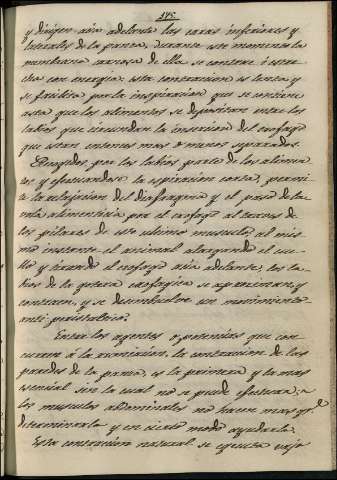 175.
y dirigen acia adelante las caras inferiores y
laterales de la panza, durante este momento la
membrana carnosa de ella se contrae i estre
cha con energia: esta contraccion es lenta y
se facilita por la inspiracion que se sostiene
asta que los alimentos se depositan entre los
labios que circundan la insercion del esofago
que estan entonces mas o menos separados.
Recogidos por los labios parte de los alimen
tos y efectuandose la espiracion corta, permi
te la relajacion del diafragma y el paso de la
vola alimenticia por el esofago al traves de
los pilares de este ultimo musculo, al mis
mo instante el animal alargando el cue
llo y tirando el esofago acia adelante, los la
bios de la gotera esofagica se aproximan, y
contraen, y se desembuelve un movimiento
anti-peristaltico.
Entre los agentes o potencias que con
curren á la rumiacion, la contraccion de las
paredes de la panza, es la primera y la mas
esencial sin la cual no se puede efectuar;
los musculos abdominales no hacen mas q.e
determinarla y en cierto modo ayudarla.
Esta contraccion natural se ejecuta vajo